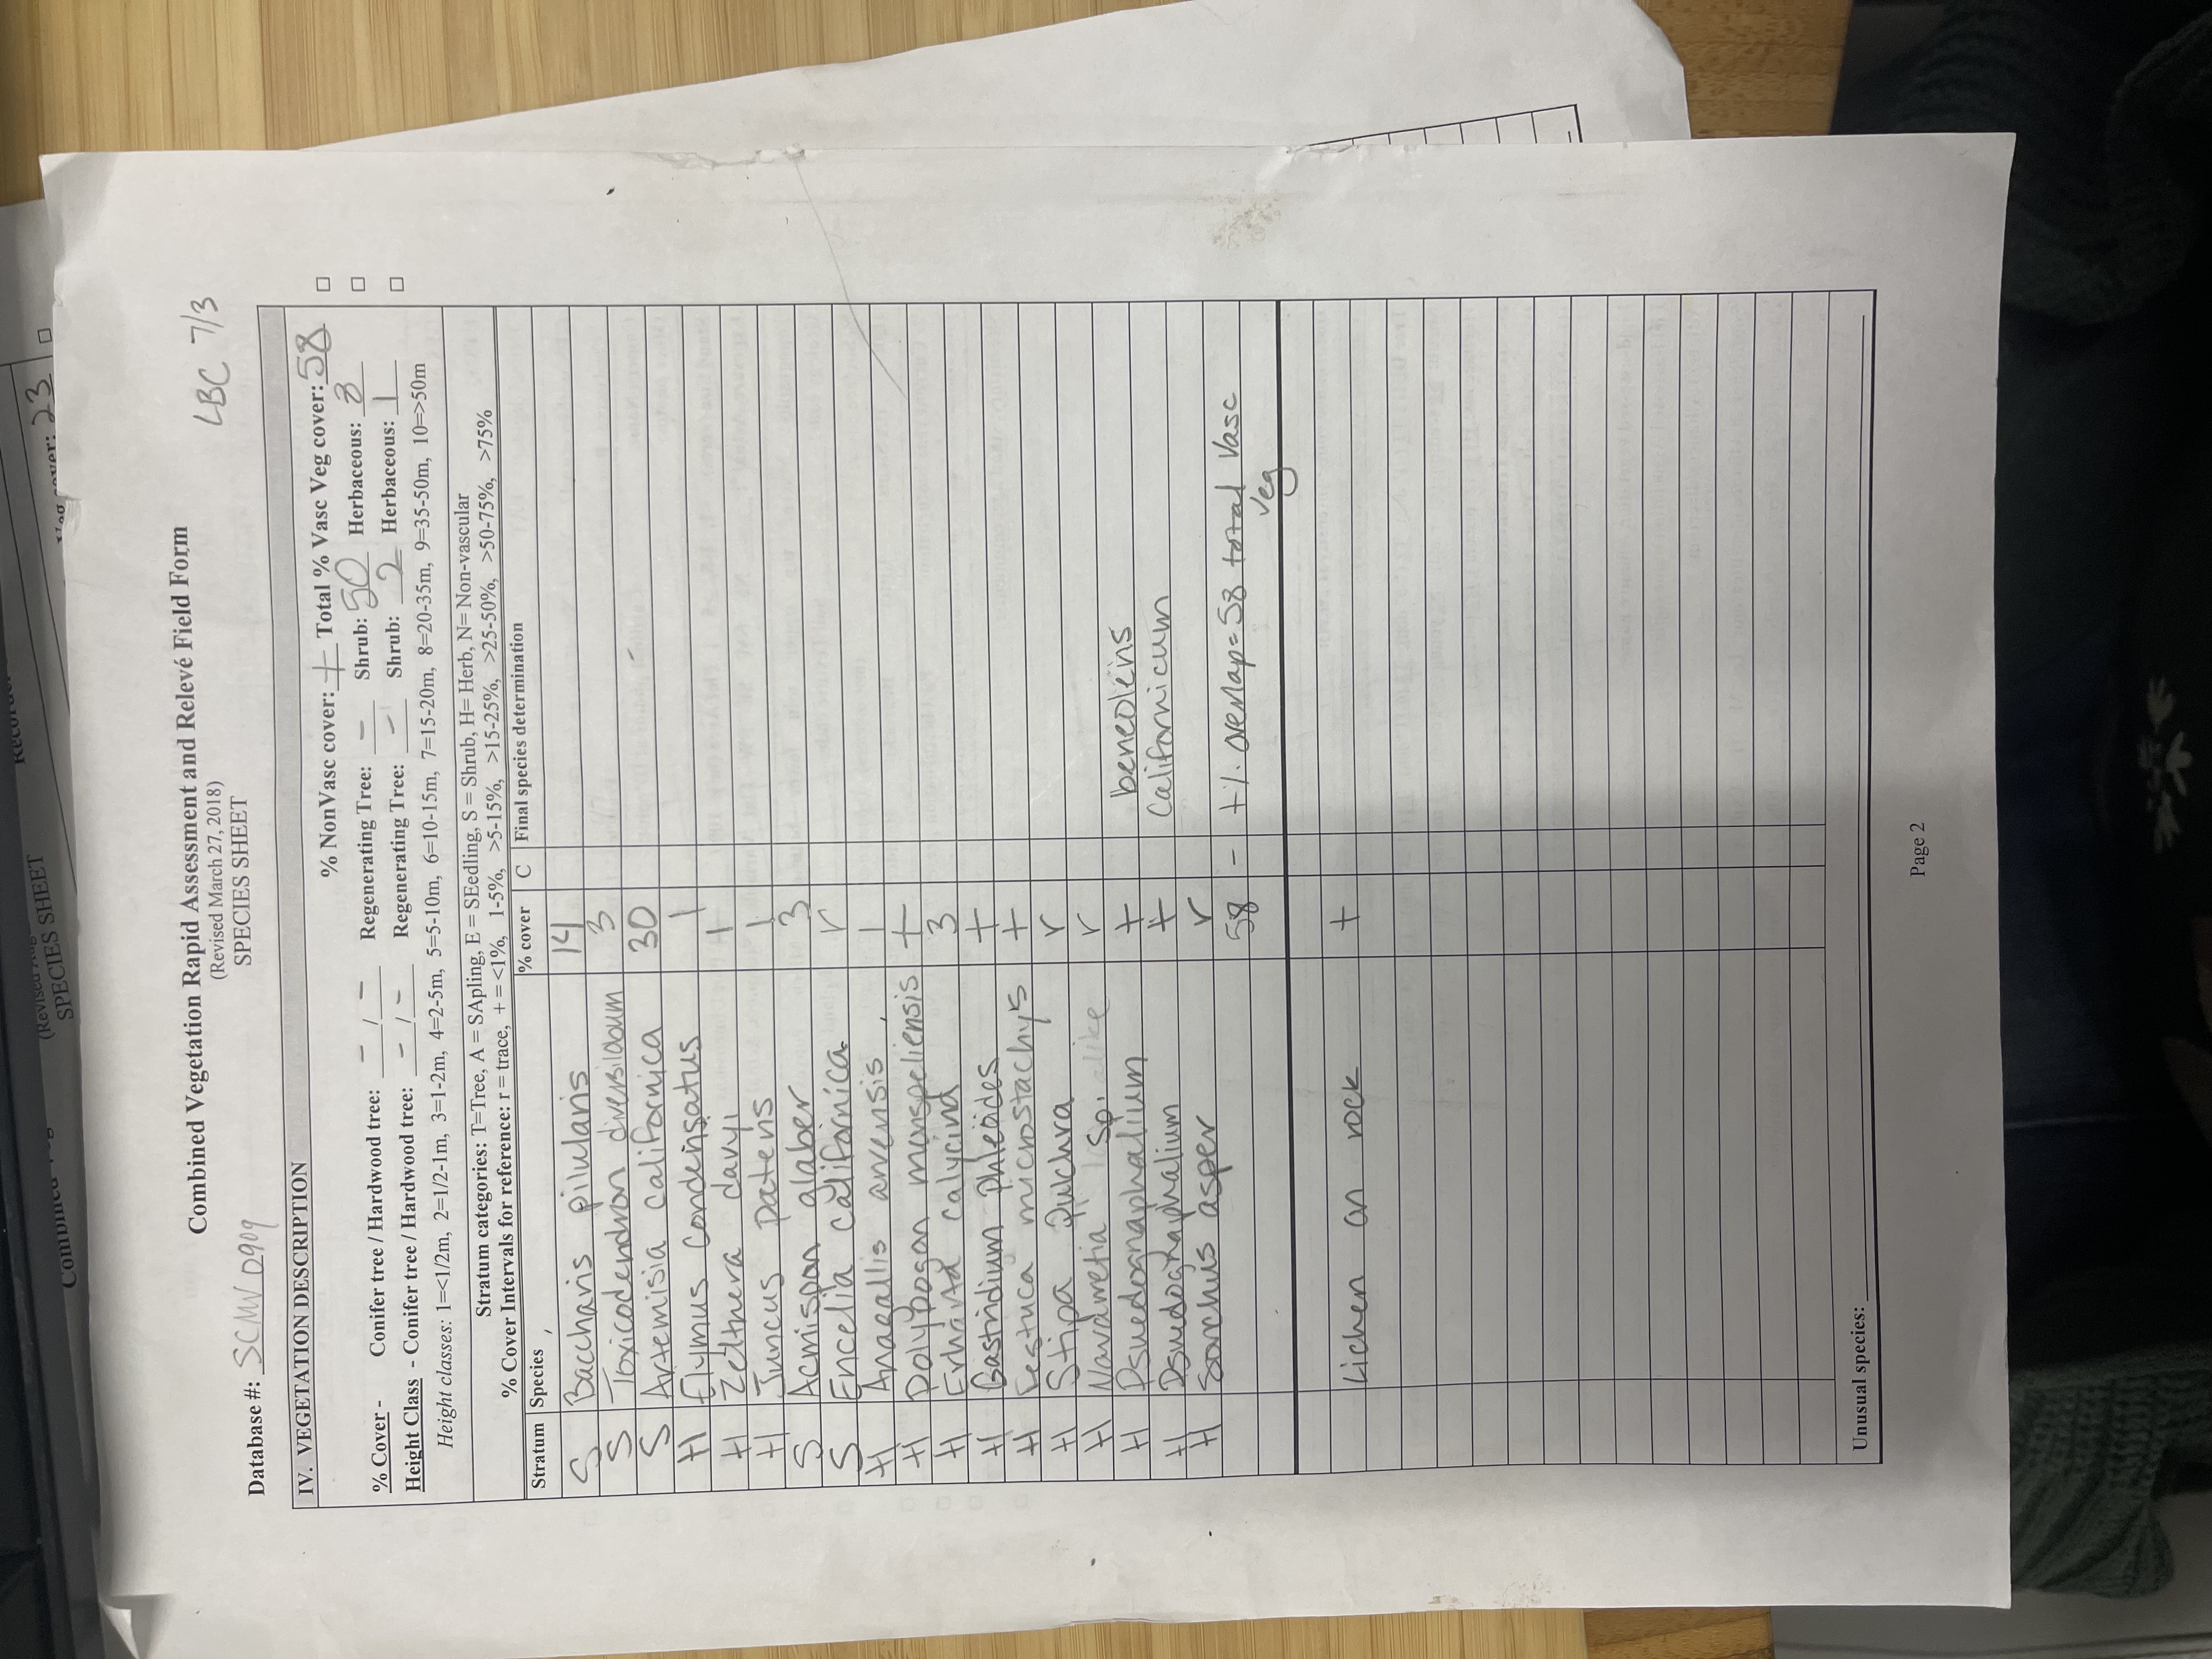 Combined Vegetation Rapid Assessment and Relevé Field Form
(Revised March 27, 2018)
SPECIES SHEET
LBC 7/3
Database #: SCMV0909
IV. VEGETATION DESCRIPTION
% NonVasc cover: + Total % Vasc Veg cover: 58
% Cover - Conifer tree / Hardwood tree: - / - Regenerating Tree: - Shrub: 50 Herbaceous: 8
Height Class - Conifer tree / Hardwood tree: - / - Regenerating Tree: - Shrub: 2 Herbaceous: 1
Height classes: 1=<1/2m, 2=1/2-1m, 3=1-2m, 4=2-5m, 5=5-10m, 6=10-15m, 7=15-20m, 8=20-35m, 9=35-50m, 10=>50m
Stratum categories: T=Tree, A = SApling, E = SEedling, S = Shrub, H= Herb, N= Non-vascular
% Cover Intervals for reference: r = trace, + = <1%, 1-5%, >5-15%, >15-25%, >25-50%, >50-75%, >75%
Stratum Species % cover C Final species determination
S Baccharis pilularis 14
S Toxicodendron diversiloum 3
S Artemisia californica 30
H Elymus condensatus 1
H Zelthera davyi 1
H Juncus patens 1
S Acmispon glaber 3
S Encelia californica r
H Anagallis arvensis 1
H Polypogon monspeliensis +
H Erharta calycina 3
H Gastridium phleoides +
H Festuca microstachys +
H Stipa pulchra r
H Navarretia sp. r
H Psuedognaphalium + beneolens
H Psuedognaphalium + Californicum
H Sonchus asper r
58 - +% overlap = 58 total vasc
veg
Lichen on rock +
Unusual species:
Page 2
SPECIES SHEET
23